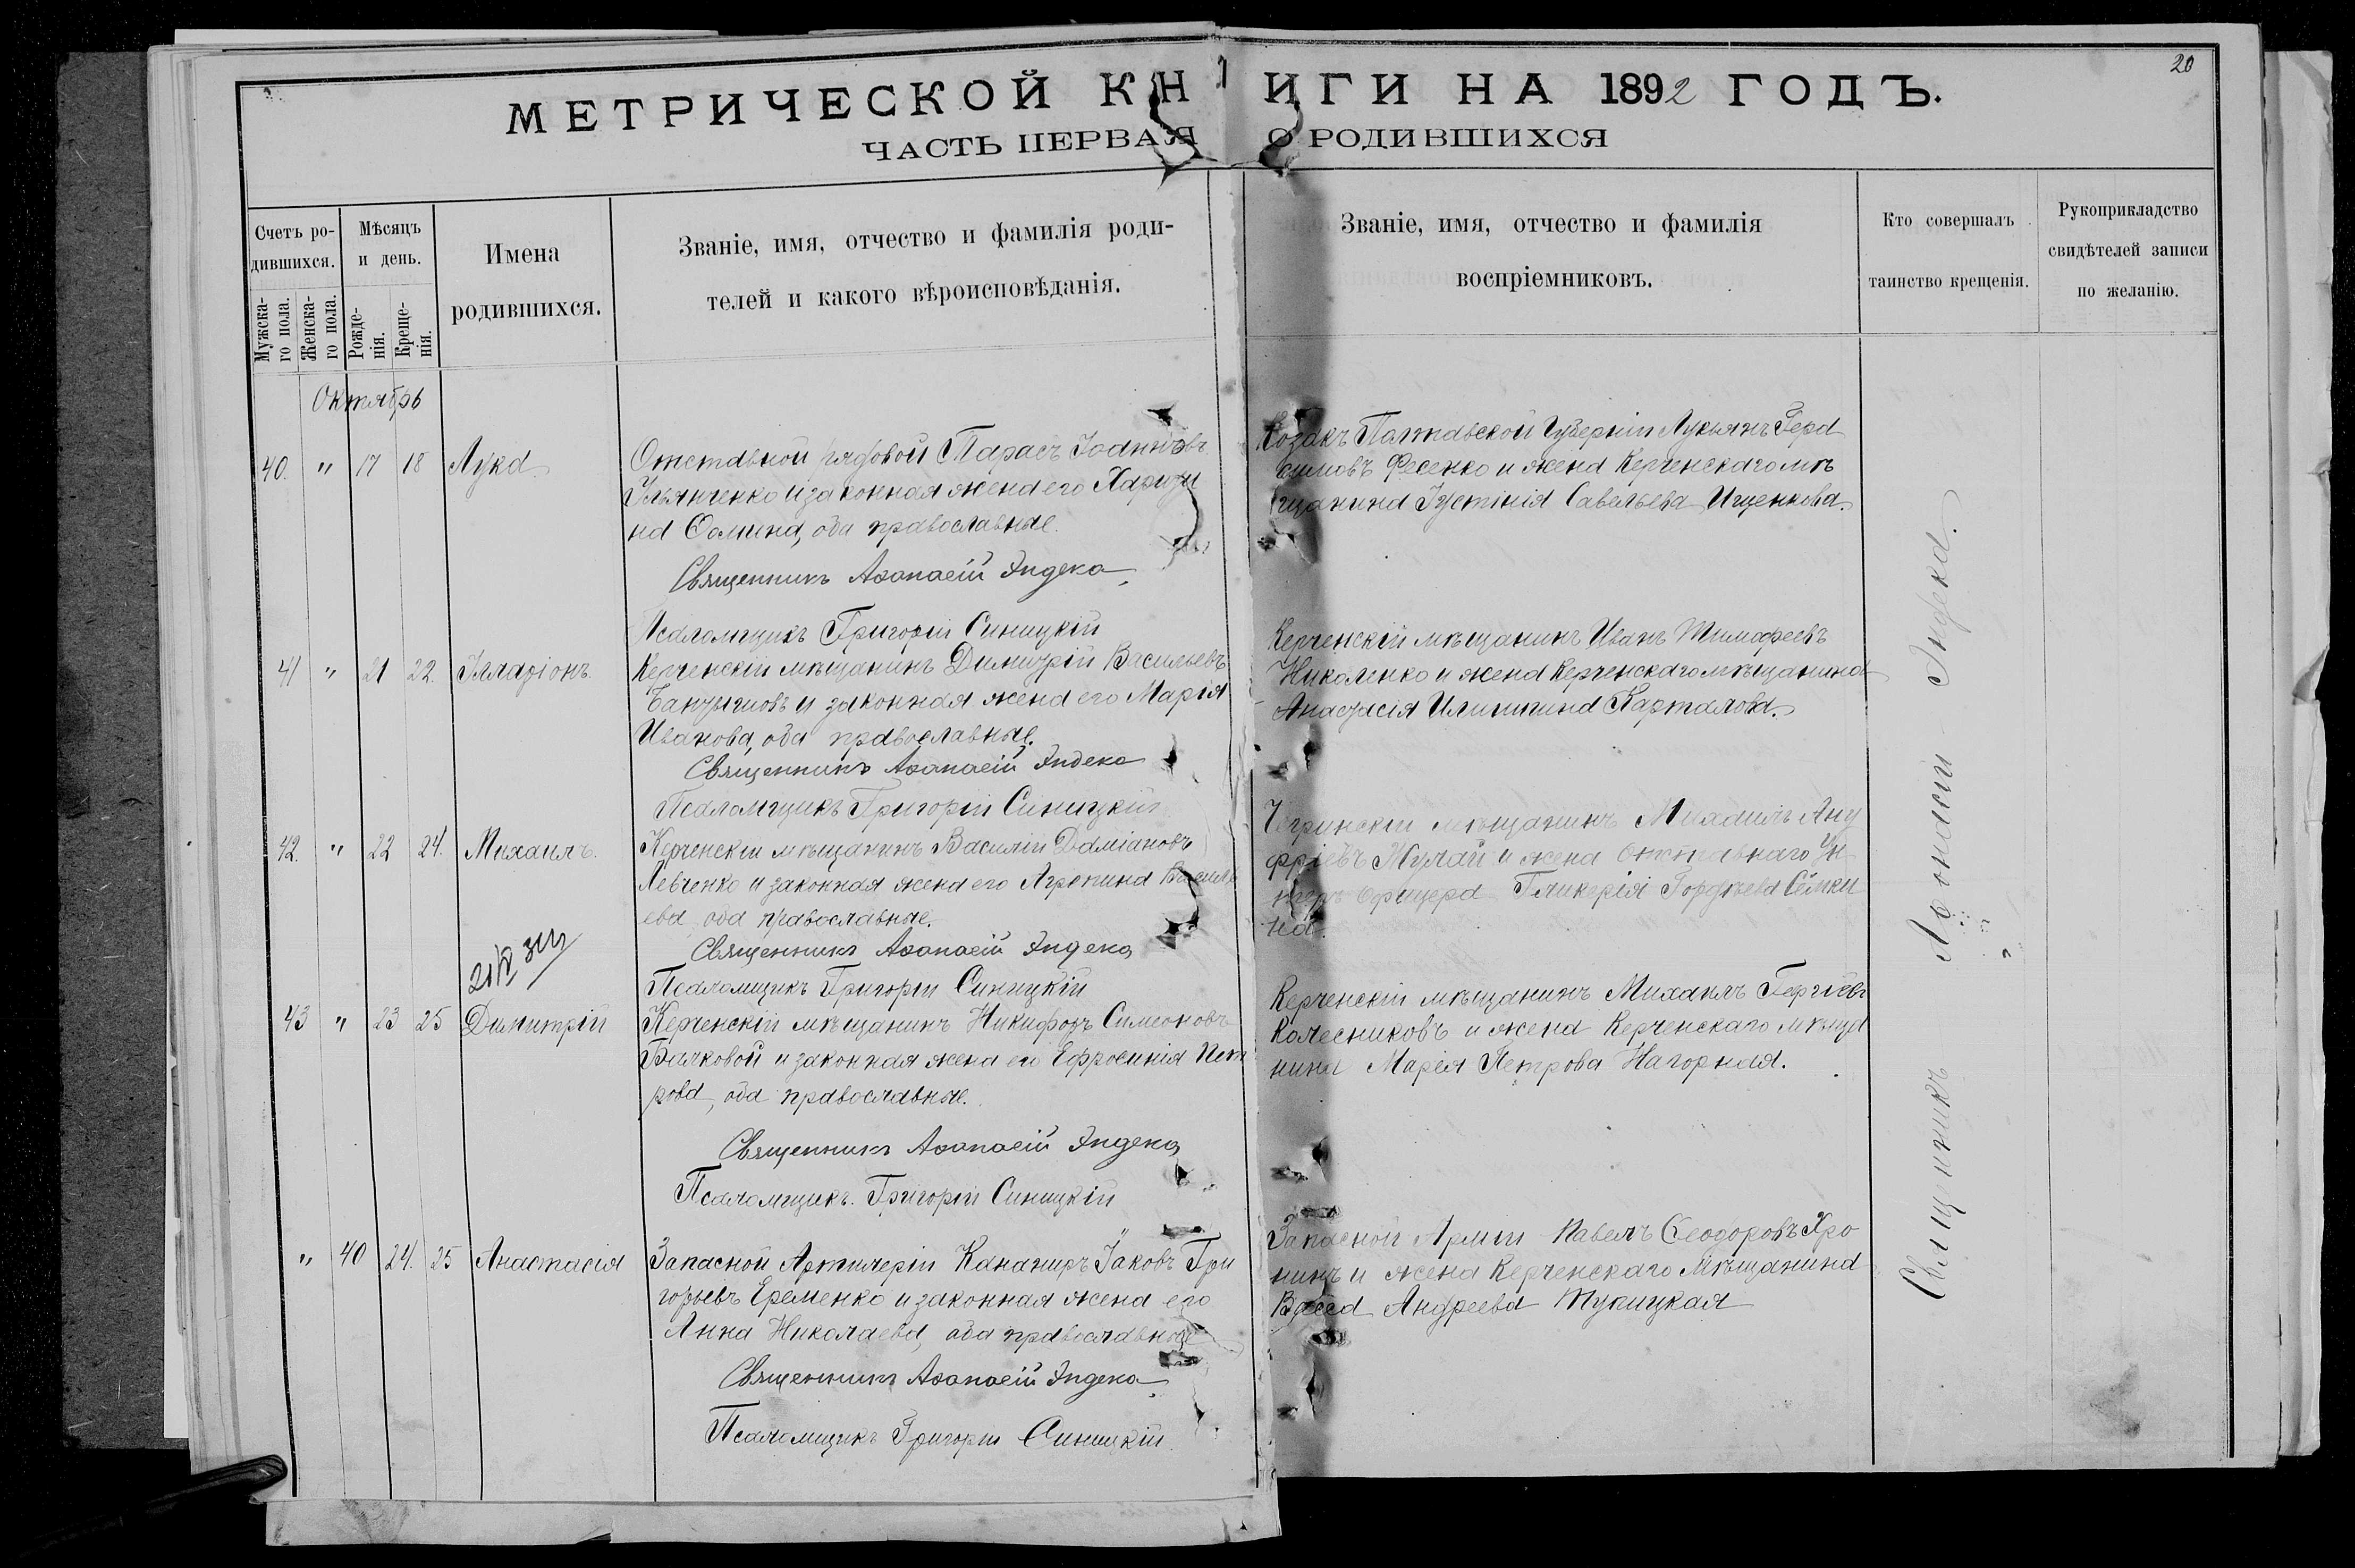 20
МЕТРИЧЕСКОЙ КНИГИ НА 1892 ГОДЪ.
ЧАСТЬ ПЕРВАЯ О РОДИВШИХСЯ
Счетъ ро-
дившихся.
Мужска-
го пола.
Женска-
го пола.
Мѣсяцъ
и день.
Рожде-
нія.
Креще-
нія.
Имена
родившихся.
Званіе, имя, отчество и фамилія роди-
телей и какого вѣроисповѣданія.
Званіе, имя, отчество и фамилія
воспріемниковъ.
Кто совершалъ
таинство крещенія.
Рукоприкладство
свидѣтелей записи
по желанію.
Октябрь
40. " 17 18 Лука
Отставной рядовой Тарасъ Іоанновъ
Ульянченко и законная жена его Харити
на Ѳомина, оба православные.
Священникъ Аѳанасій Эндека
Псаломщикъ Григорій Синицкій
Козакъ Полтавской Губерніи Лукьянъ Гера
симовъ Фесенко и жена Керченскаго мѣ
щанина Іустинія Савельева Ищенкова.
41 " 21 22. Илларіонъ.
Керченскій мѣщанинъ Димитрій Васильевъ
и законная жена его Марія
Иванова, оба православные.
Священникъ Аѳанасій Эндека
Псаломщикъ Григорій Синицкій
Керченскій мѣщанинъ Иванъ Тимофеевъ
Николенко и жена Керченскаго мѣщанина
Анастасія Илиинина Карталова.
42. " 22 24. Михаилъ.
Керченскій мѣщанинъ Василій Даміановъ
Левченко и законная жена его Агрепина Василь
ева, оба православные.
Священникъ Аѳанасій Эндека
Псаломщикъ Григорій Синицкій
мѣщанинъ Михаилъ Ану
фріевъ и жена отставнаго Ун
теръ офицера Гликерія Гордѣева Сёмки
на.
43 " 23 25 Димитрій
Керченскій мѣщанинъ Никифоръ Симеоновъ
Балковой и законная жена его Ефросинія Пет
рова, оба православные.
Священникъ Аѳанасій Эндека
Псаломщикъ Григорій Синицкій
Керченскій мѣщанинъ Михаилъ Георгіевъ
Колесниковъ и жена Керченскаго мѣща
нина Марія Петрова Нагорная.
" 40 24. 25 Анастасія
Запасной Артилеріи Кананиръ Іаковъ Гри
горьевъ Еременко и законная жена его
Анна Николаева, оба православные
Священникъ Аѳанасій Эндека
Псаломщикъ Григорій Синицкій
Запасной Арміи Павелъ Ѳеодоровъ Хро
нинъ и жена Керченскаго Мѣщанина
Васса Андреева Тупицкая
Священникъ Аѳонасій Эндека.